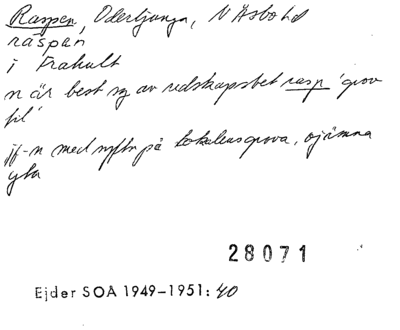 Raspen, Oderljunga, N Åsbo hd
raspen
i Frakult
n är best sg av redskapsbet rasp 'grov
fil'
jf-n med syftn på lokalens grova, ojämna
yta
28071
Ejder SOA 1949–1951: 40